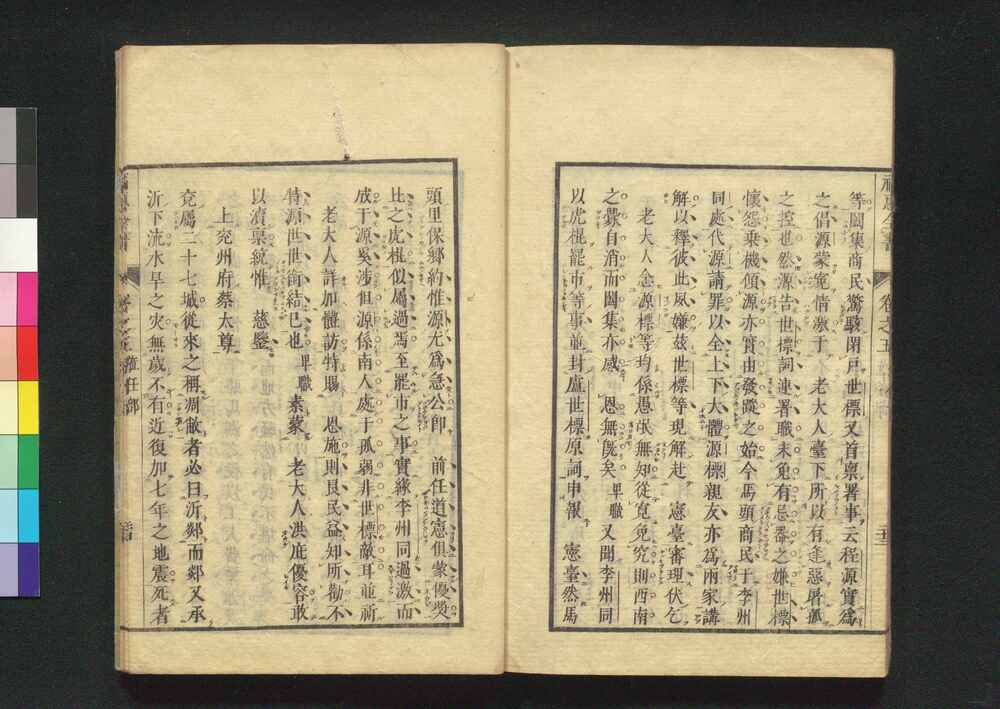 等鬨集商民驚駭閉戸世標又首禀署事云程源實爲
之倡源蒙寃情激于　老大人臺下所以有逢惡厝孤
之控也然源告世標詞連署職未免有忌器之嫌世標
懷怨乗機傾源亦實由發蹤之始今馬頭商民于李州
同處代源請罪以全上下大體源標親友亦爲兩家講
解以釋彼此夙嫌兹世標等現解赴　憲臺審理伏乞
老大人念源標等均係愚氓無知從寛免究則西南
之釁自消而闔集亦感　恩無旣矣卑職又聞李州同
以虎棍罷市等事並封盧世標原詞申報　憲臺然馬
頭里保郷約惟源尤爲急公卽　前任道憲俱蒙優奬
比之虎棍似屬過焉至罷市之事實緣李州同過激而
成于源奚涉但源係南人處于孤弱非世標敵耳並祈
老大人詳加體訪特賜　恩施則艮民益知所勸不
特源世世銜結已也卑職素蒙　老大人洪庇優容敢
以瀆稟統惟　慈鑒
上兖州府蔡太尊
兖屬二十七城從來之稱凋敝者必曰沂郯而郯又承
沂下流水旱之灾無歳不有近復加七年之地震死者
卷之五